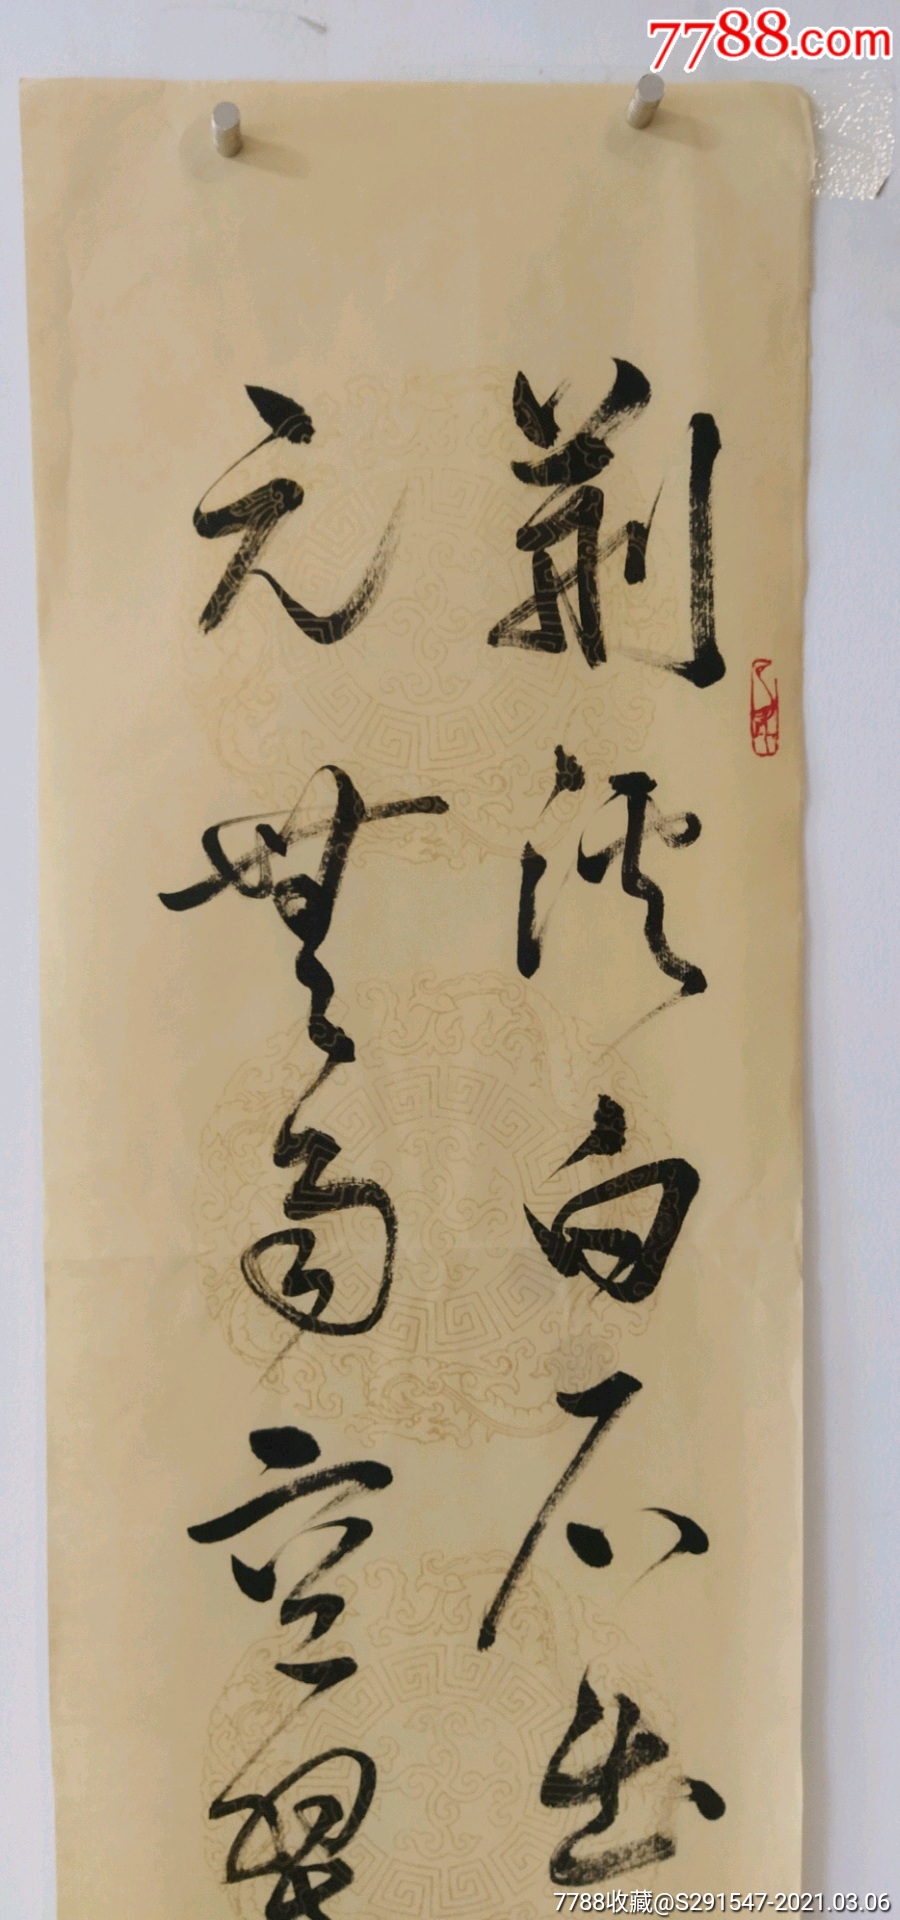 7788.com
荆溪白石出
元無雨空翠
7788收藏@S291547-2021.03.06